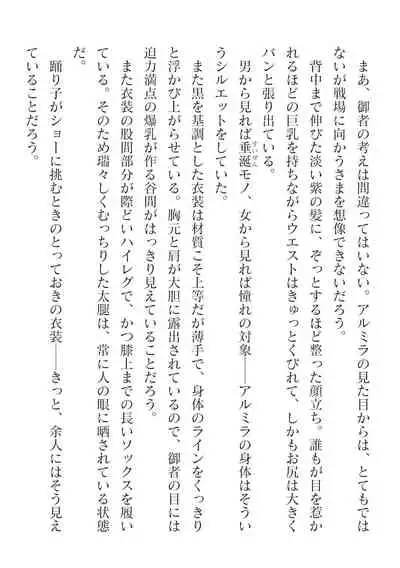 まあ、御者の考えは間違ってはいない。アルミラの見た目からは、とてもでは
ないが戦場に向かうさまを想像できないだろう。
背中まで伸びた淡い紫の髪に、ぞっとするほど整った顔立ち。誰もが目を惹か
れるほどの巨乳を持ちながらウエストはきゅっとくびれて、しかもお尻は大きく
バンと張り出ている。
男から見れば垂涎モノ、女から見れば憧れの対象――アルミラの身体はそうい
すいぜん
うシルエットをしていた。
また黒を基調とした衣装は材質こそ上等だが薄手で、身体のラインをくっきり
と浮かび上がらせている。胸元と肩が大胆に露出されているので、御者の目には
迫力満点の爆乳が作る谷間がはっきり見えていることだろう。
また衣装の股間部分が際どいハイレグで、かつ膝上までの長いソックスを履い
ている。そのため瑞々しくむっちりした太腿は、常に人の眼に晒されている状態
だ。
踊り子がショーに挑むときのとっておきの衣装――きっと、余人にはそう見え
ていることだろう。